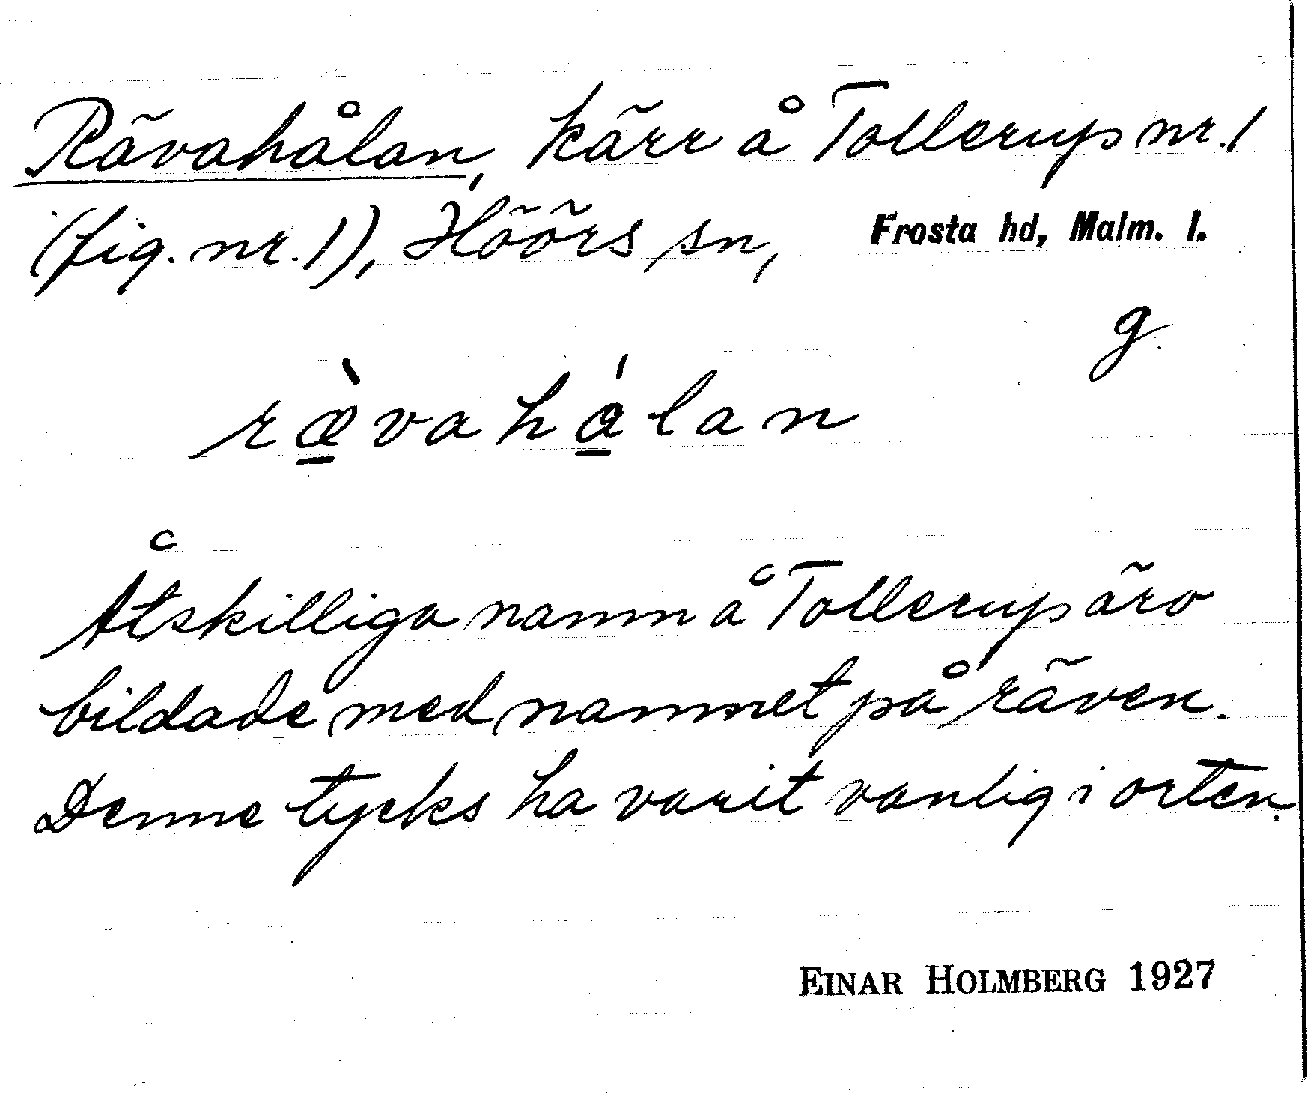 Rävahålan, kärr å Tollerup nr. 1
(fig. nr. 1), Höörs sn, Frosta hd, Malm. l.
g.
ræ̱̀vahá̱lan
Åtskilliga namn å Tollerup äro
bildade med namnet på räven.
Denne tycks ha varit vanlig i orten.
EINAR HOLMBERG 1927